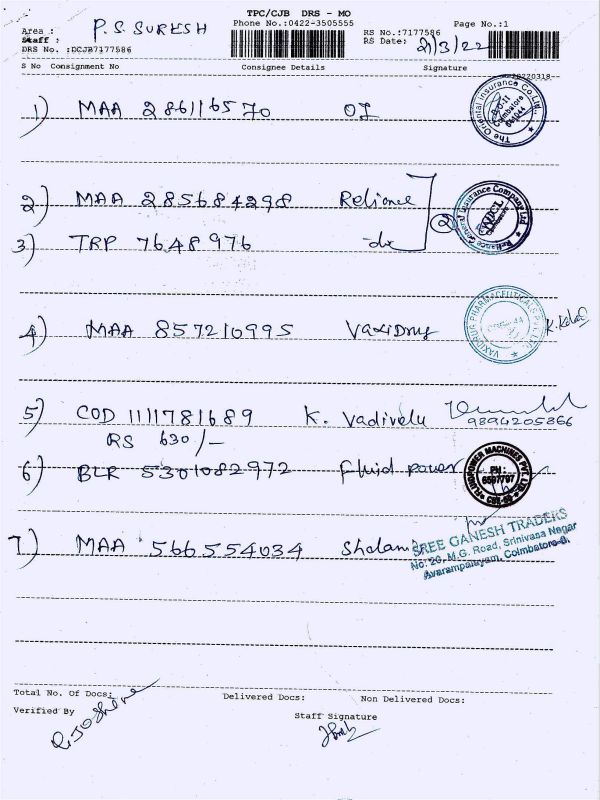 TPC/CJB DRS - MO
Area : P. S. SURESH
Phone No.:0422-3505555
RS No.:7177586
Page No.:1
Staff :
RS Date: 21/3/22
DRS No. :DCJB7177586
S No Consignment No Consignee Details Signature
1) MAA 286116570 OI
The Oriental Insurance Co. Ltd. Coimbatore 641044
2) MAA 285684298 Reliance
Reliance General Insurance Company Ltd
3) TRP 7648976 -do- 2
4) MAA 857210995 VaxiDrug
VAXIDRUG PHARMACEUTICALS PVT. LTD.
5) COD 1111781689 K. Vadivelu
9894205866
RS 630/-
6) BLR 5301082972 fluid power
FLUIDPOWER MACHINES PVT. LTD. PH: 6597797
7) MAA 566554034
SREE GANESH TRADERS
No: 26, M.G. Road, Srinivana Nagar
Avarampalayam, Coimbatore-6.
Total No. Of Docs:
Delivered Docs: Non Delivered Docs:
Verified By
Staff Signature